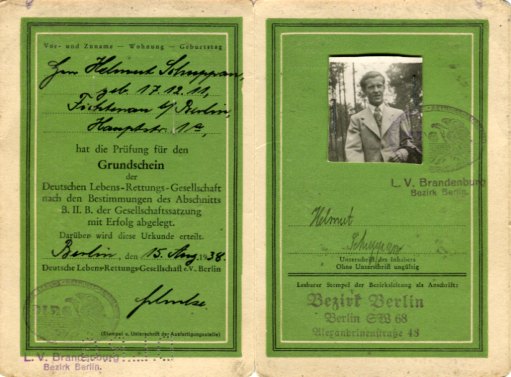 Vor- und Zuname — Wohnung — Geburtstag
Herr Helmut Schuppan,
geb 17.12.11,
Fichtenau b/Berlin,
Hauptstr. 11a,
hat die Prüfung für den
Grundschein
der
Deutschen Lebens-Rettungs-Gesellschaft
nach den Bestimmungen des Abschnitts
B. II. B. der Gesellschaftssatzung
mit Erfolg abgelegt.
Darüber wird diese Urkunde erteilt.
Berlin, den 15. Aug 1938.
Deutsche Lebens-Rettungs-Gesellschaft e.V. Berlin
(Stempel u. Unterschrift der Ausfertigungsstelle)
L. V. Brandenburg
Bezirk Berlin.
L. V. Brandenburg
Bezirk Berlin.
Helmut
Schuppan
Unterschrift des Inhabers
Ohne Unterschrift ungültig
Lesbarer Stempel der Bezirksleitung als Anschrift:
Bezirk Berlin
Berlin SW 68
Alexandrinenstraße 48